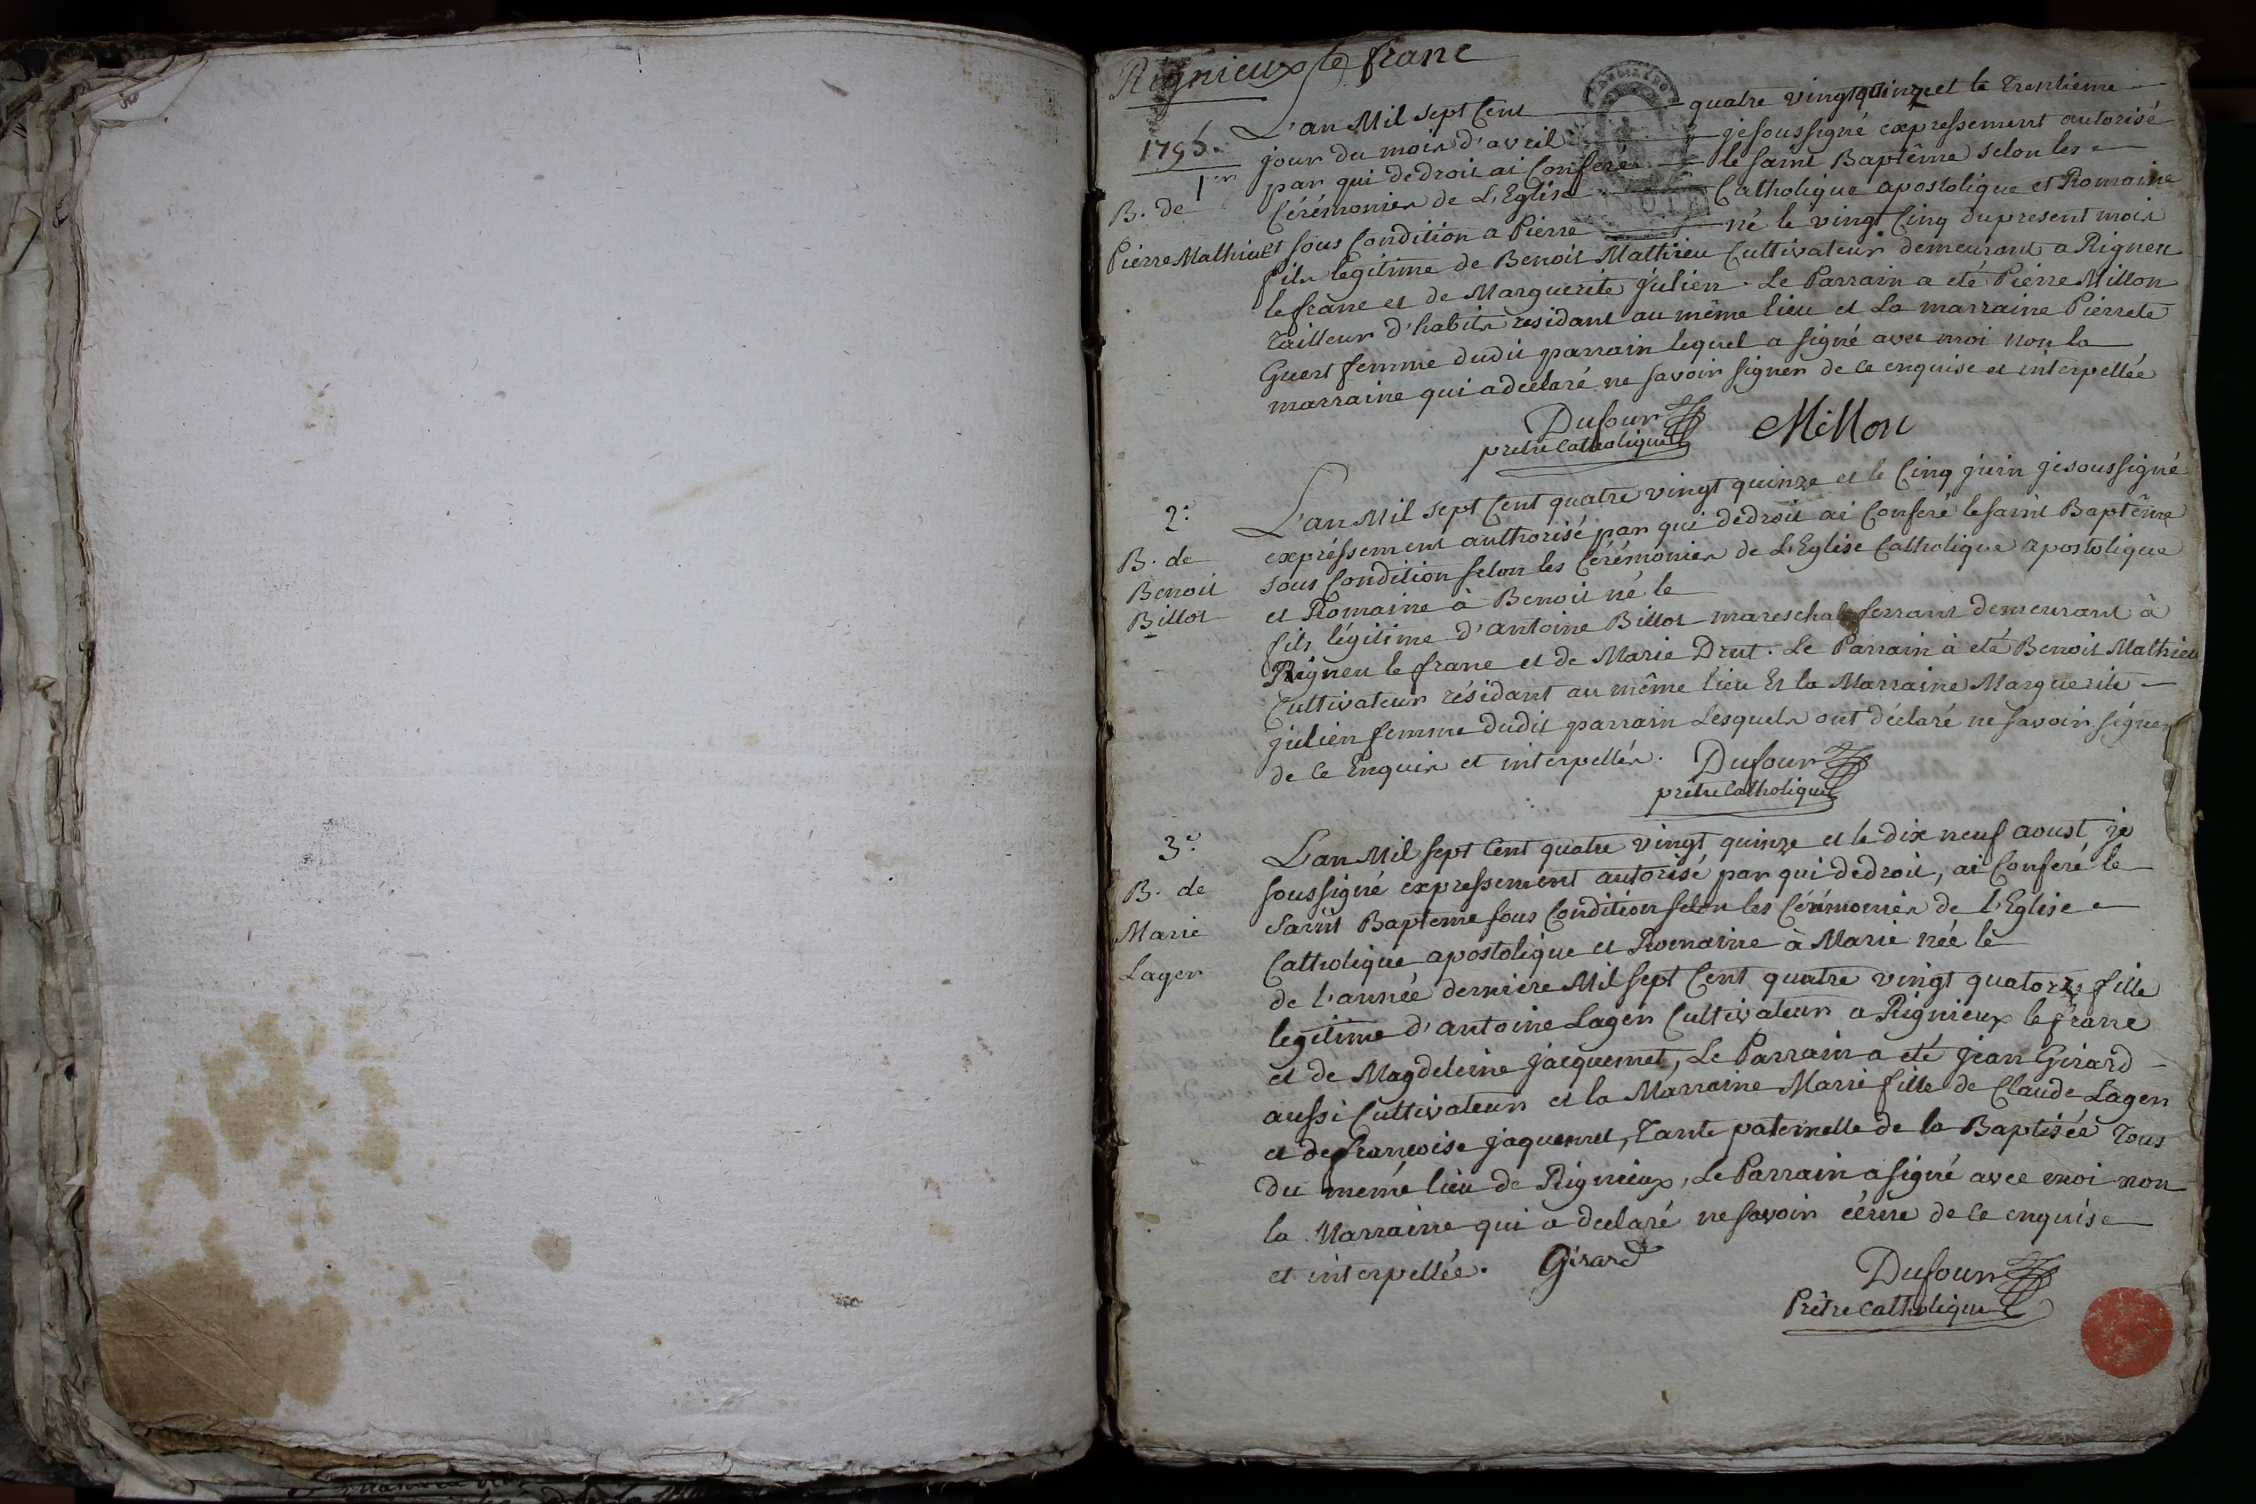 Rignieux le franc
1795.
1er
B. de
Pierre Mathieu
L'an Mil sept Cent quatre vingt quinze et le trentieme
jour du mois d'avril je soussigné expressement autorisé
par qui de droit ai Conferé le saint Baptême selon les
Cérémonies de L'Eglise Catholique apostolique et Romaine
et sous Condition a Pierre né le vingt Cinq du present mois
fils legitime de Benoit Mathieu Cultivateur demeurant a Rigneu
le franc et de Marguerite julien. Le Parrain a eté Pierre Millon
Tailleur d'habits residant au même lieu et La marraine Pierrete
Guert femme dudit parrain lequel a signé avec moi non la
marraine qui a declaré ne savoir signer de ce enquise et interpellée
Dufour Millon
pretre Catholique
2e
B. de
Benoit
Billot
L'an Mil sept Cent quatre vingt quinze et le Cinq juin je soussigné
expréssement authorisé par qui de droit ai Conferé le saint Baptême
sous Condition selon les Cérémonies de L'Eglise Catholique apostolique
et Romaine à Benoit né le
fils légitime d'antoine Billot mareschal ferrant demeurant à
Rigneu le franc et de Marie Drut. Le Parrain à eté Benoit Mathieu
Cultivateur résidant au même lieu Et la Marraine Marguerite
julien femme dudit parrain Lesquels ont déclaré ne savoir signer
de ce Enquis et interpellés. Dufour
prêtre Catholique
3e
B. de
Marie
Lager
L'an Mil sept Cent quatre vingt quinze et le dix neuf aoust je
soussigné expressement autorisé par qui de droit, ai Conferé le
saint Bapteme sous Condition selon les Cérémonies de l'Eglise
Catholique apostolique et Romaine à Marie née le
de l'année derniere Mil sept Cent quatre vingt quatorze fille
legitime d'antoine Lager Cultivateur a Rignieux le franc
et de Magdeleine jacquemet, Le Parrain a eté jean Girard
aussi Cultivateur et la Marraine Marie fille de Claude Lager
et de francoise jaquemet, Tante paternelle de la Baptisée Tous
du même lieu de Rignieux, Le Parrain a signé avec moi non
la Marraine qui a declaré ne savoir écrire de ce enquise
et interpellée. Girard
Dufour
Prêtre Catholique